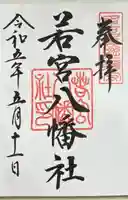 奉拝
若宮八幡社
令和五年五月十一日